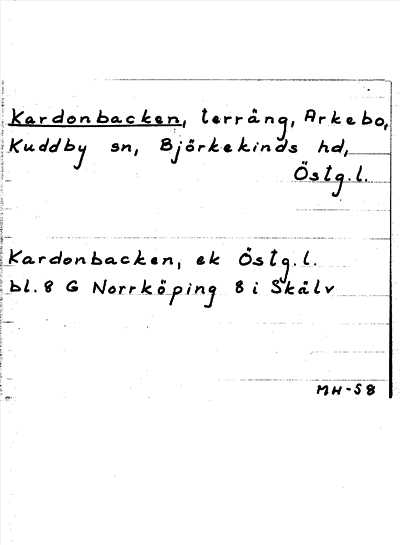 Kardonbacken, terräng, Arkebo,
Kuddby sn, Björkekinds hd,
Östg.l.
Kardonbacken, ek Östg.l.
bl. 8 G Norrköping 8 i Skälv
MH-58